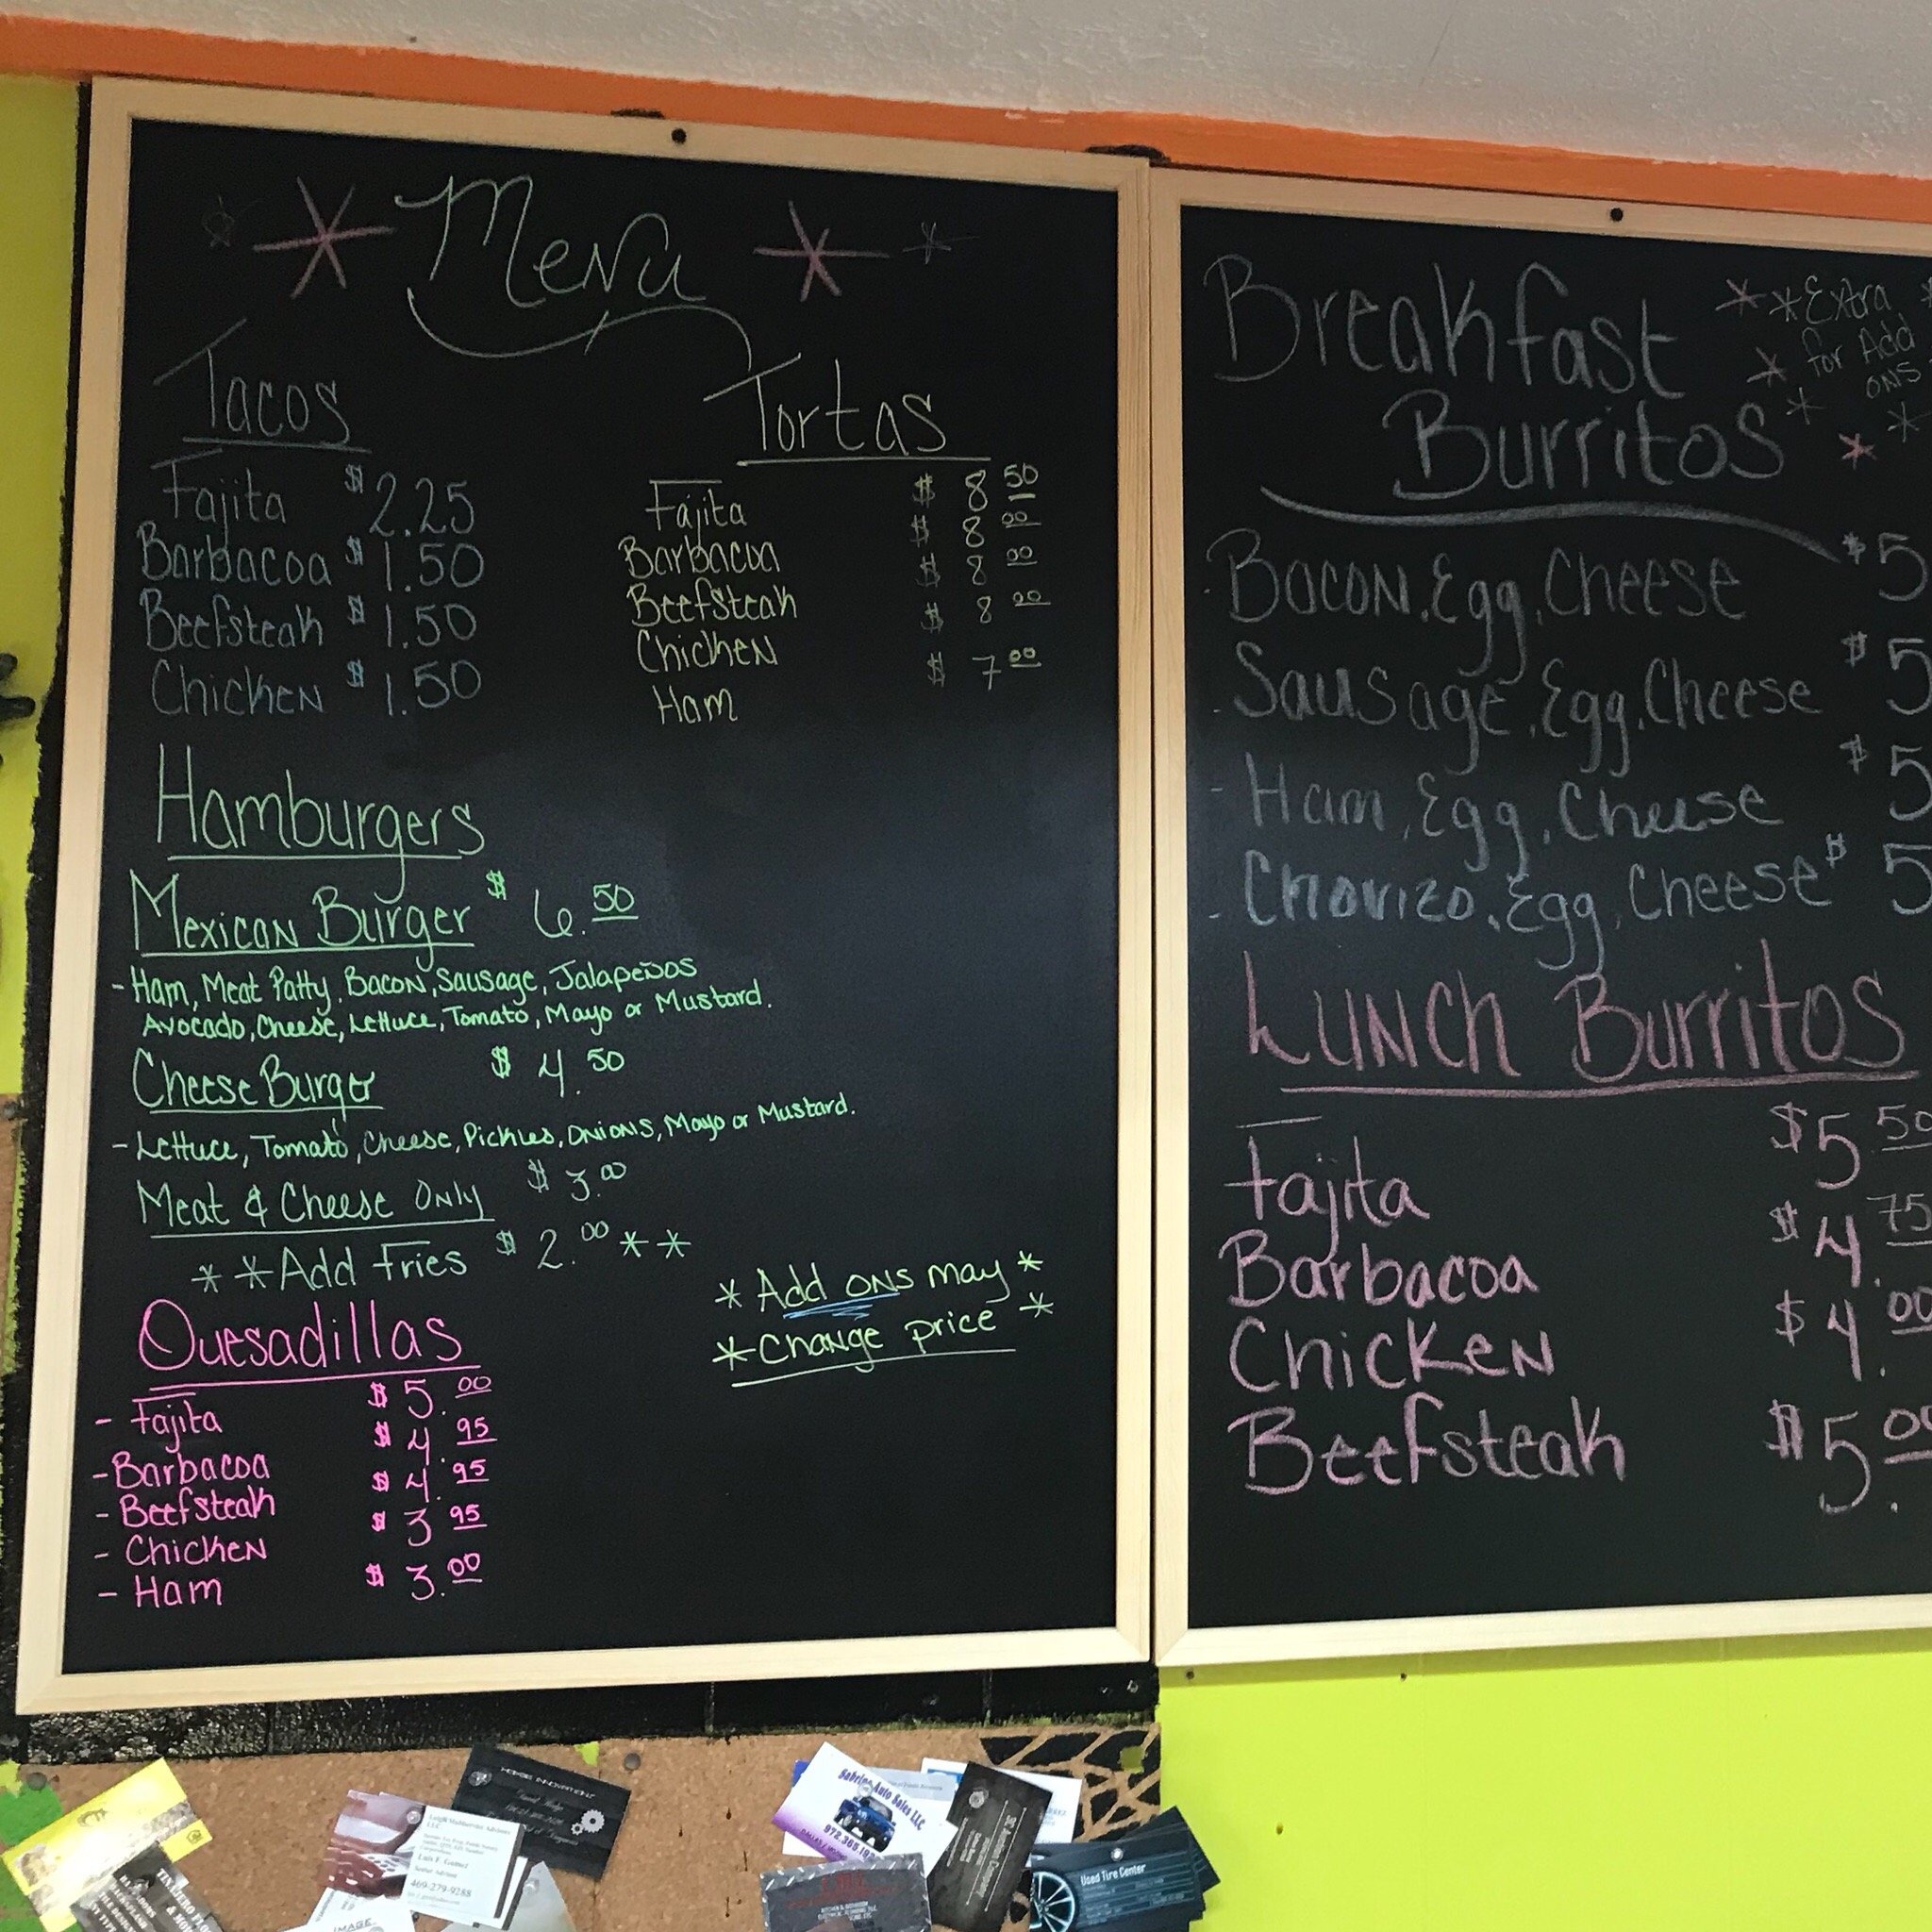 Menu
Tacos
Fajita $2.25
Barbacoa $1.50
Beefsteak $1.50
Chicken $1.50
Tortas
Fajita $8 50
Barbacoa $8 00
Beefsteak $8 00
Chicken $8 00
Ham $7 00
Hamburgers
Mexican Burger $6.50
- Ham, Meat Patty, Bacon, Sausage, Jalapeños
Avocado, Cheese, Lettuce, Tomato, Mayo or Mustard.
Cheese Burger $4.50
- Lettuce, Tomato, Cheese, Pickles, Onions, Mayo or Mustard.
Meat & Cheese Only $3.00
**Add Fries $2.00**
*Add ons may*
*Change price*
Quesadillas
- Fajita $5.00
- Barbacoa $4.95
- Beefsteak $4.95
- Chicken $3 95
- Ham $3.00
Breakfast
Burritos
*Extra $
for Add
ons
- Bacon, Egg, Cheese $5
- Sausage, Egg, Cheese $5
- Ham, Egg, Cheese $5
- Chorizo, Egg, Cheese $5
Lunch Burritos
Fajita $5.50
Barbacoa $4.75
Chicken $4.00
Beefsteak $5.00
Luis F. Gamez
469-279-9288
IMAGE
Sabrina Auto Sales LLC
Used Tire Center